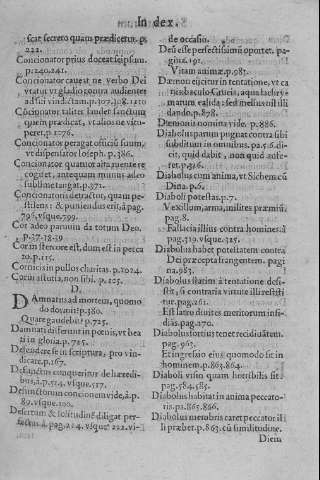 In dex.
scat secreto quam prædicetur. p.
222.
Concionator prius doceat seipsum.
p. 240.241.
Concionator caueat ne verbo Dei
vtatur vt gladio contra audientes
ad sui vindictam. p. 307.
Concionator taliter laudet sanctum
quem prædicat, vt alios ne vitu-
peret. p. 1276.
Concionator peragat officiũ suum,
vt dispensator Ioseph. p. 386.
Concionator quantius alta mente re
cogitet, antequam munus adeo
sublime tangat. p. 371.
Concionatoris detractor, quam pe-
stilens: & puniendus erit, à pag.
796. vsque. 799.
Cot adeo paruum da totum Deo.
p. 37.38.39
Cor in stercore est, dum est in pecca
to. p. 115.
Cornicis in pullos charitas. p. 1024.
Corui astutia, non sibi. p. 225.
D.
Damnatus ad mortem, quomo
do dormit? p. 380.
Quare gaudebit? p. 725.
Damnati differunt in pœnis, vt bea
ti in gloria. p. 725.
Defendere se in scriptura, pro vin-
dicare. p. 167.
Defunctus conqueritor de hæredi-
bus, à p. 514. vsque. 517.
Defunctorum concionem vide, à p.
89. vsque. 100.
Desertum & solitudinẽ diligat per-
fectus à. pag. 214. vsque 222. vi-
de occasio.
Deũ esse perfectissimũ oportet. pa-
gina. 191.
Vitam animæ. p. 983.
Dæmon eijcitur in tentatione, vt ca
nis baculo
marum
dando. p. 878.
Dæmonis nomina vide. p. 886.
Diabolus parum pugnat contra sibi
subditum in omnibus. p. 5.6. di-
cit, quid dabit, non quod aufe-
ret. p. 426.
Diabolus cum anima, vt Sichem cũ
Dina. p. 6.
Diaboli potestas. p. 7.
Vexillum, arma, milites præmiũ.
pag. 8.
Fallacia illius contra homines. à
pag. 319. vsque. 325.
Diabolus habet potestatem contra
Dei præcepta frangentem. pagi
na. 983.
Diabolus statim à tentatione desi-
stit, si è contraria virtute illi resisti
tur. pag. 261.
Est latro diuites meritorum insi-
dians. pag. 270.
Diabolus fortius tenet recidiuãtem.
pag. 963.
Et ingressio eius quomodo sit in
hominem. p. 863.864.
Diaboli visio quam horribilis sit?
pag. 584.585.
Diabolus habitat in anima peccato-
ris. pa. 865.866.
Diabolus merobris caret peccator il
li præbet. p. 863. cũ similitudine.
Diem